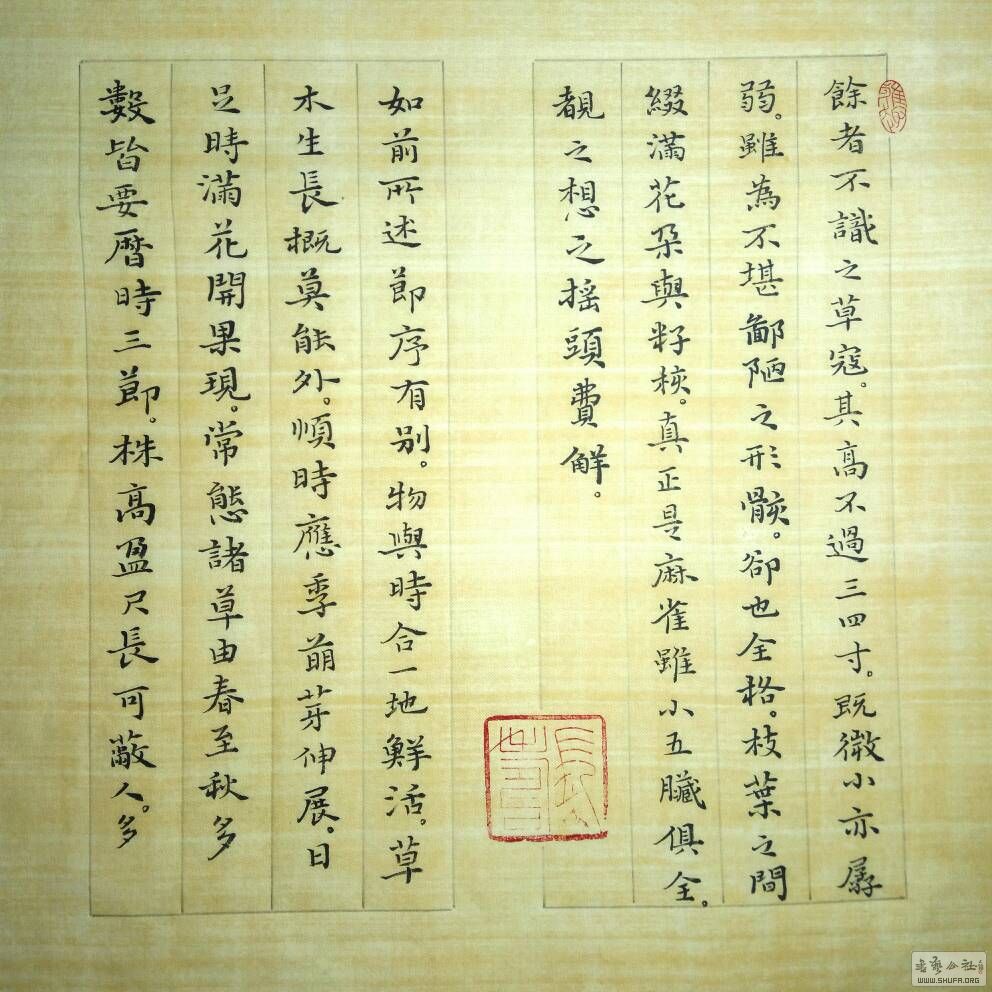 餘者不識之草寇。其高不過三四寸。既微小亦孱
弱。雖為不堪鄙陋之形骸。卻也全格。枝葉之間
綴滿花朶與籽核。真正是麻雀雖小五臟俱全。
覩之想之摇頭費解。
如前所述節序有别。物與時合一地鮮活。草
木生長概莫能外。順時應季萌芽伸展、日
足時滿花開果現。常態諸草由春至秋多
數皆要曆時三節。株高盈尺長可蔽人。多
WWW.SHUFA.ORG